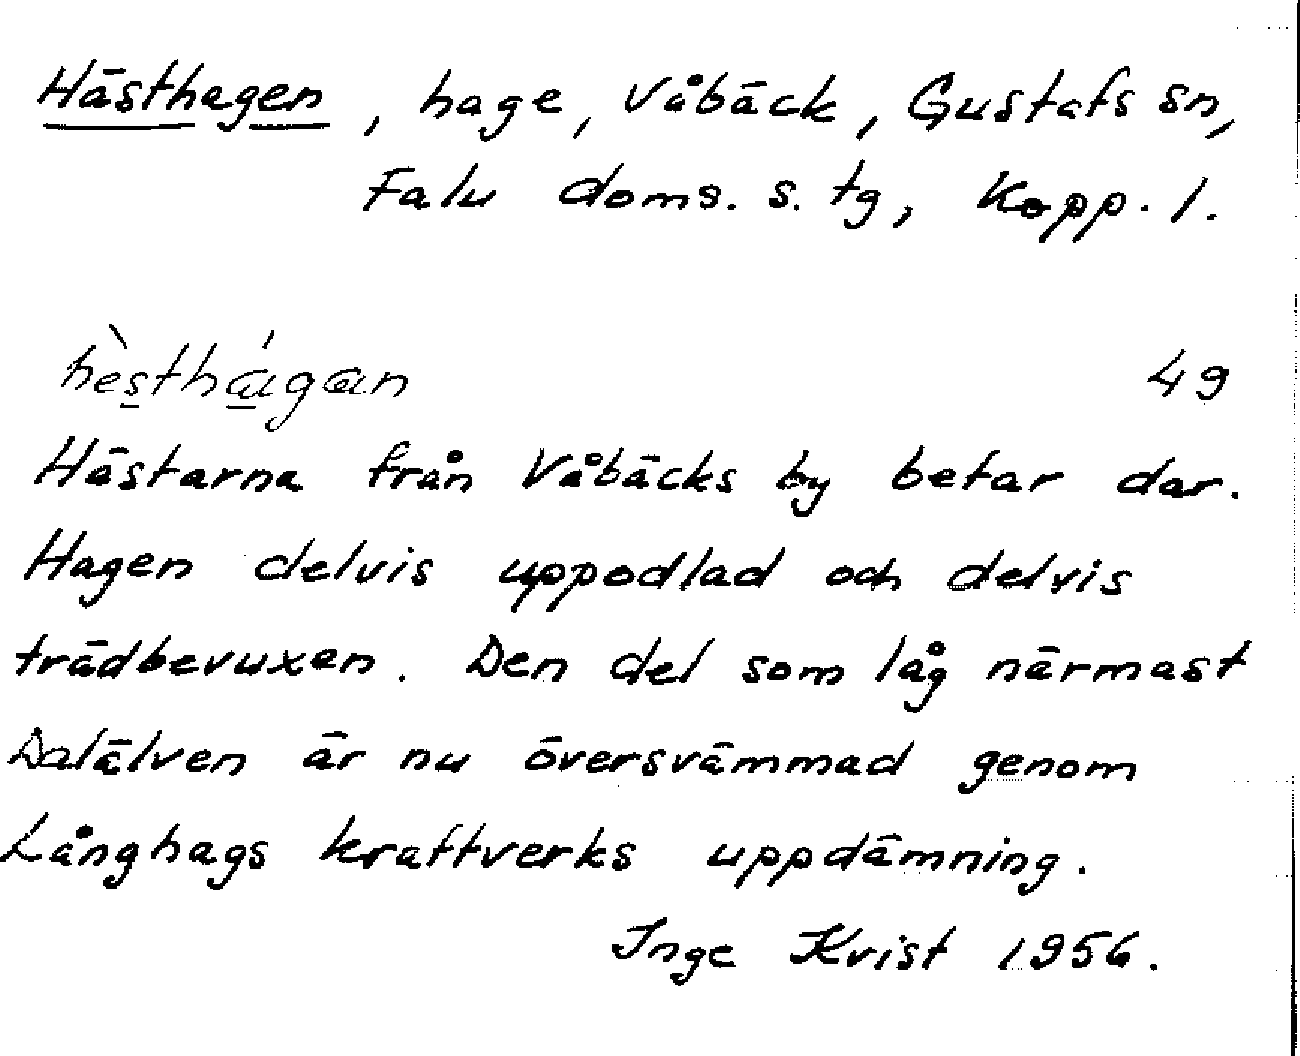 Hästhagen, hage, Våbäck, Gustafs sn,
Falu doms. s. tg, Kopp. l.
hèsthágan 49
Hästarna från Våbäcks by betar där.
Hagen delvis uppodlad och delvis
trädbevuxen. Den del som låg närmast
Dalälven är nu översvämmad genom
Långhags kraftverks uppdämning.
Inge Kvist 1956.